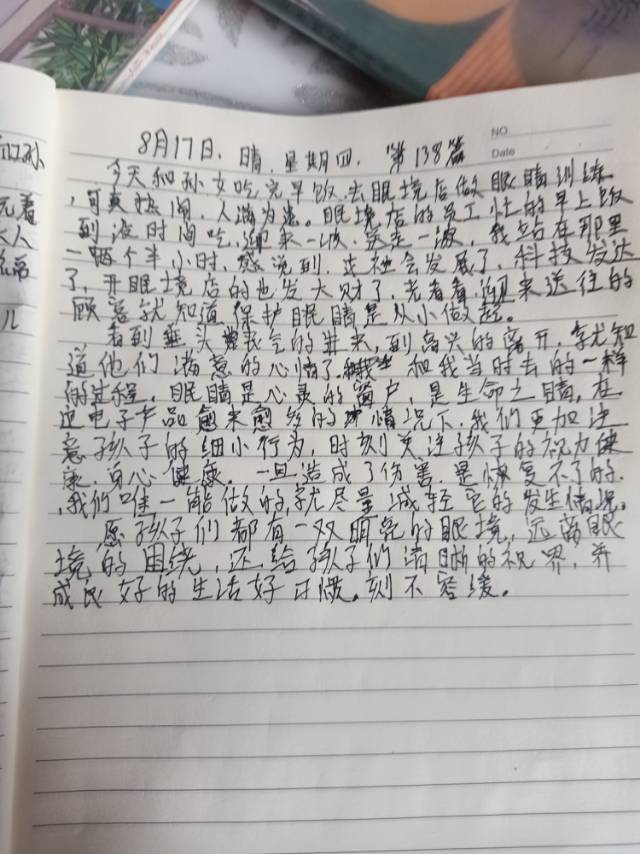 们孙
NO.
Date
元着
大人
8月17日. 晴. 星期四. 第138篇
今天和孙女吃完早饭.去眼境店做眼睛训练
,可真热闹,人满为患。眼境店的员工忙的早上饭
到没时间吃,迎来一波.穿走一波,我站在那里
一俩个半小时.感说到.这社会发展了,科技发达
了,开眼境店的也发大财了,光看着迎来送往的
顾客就知道保护眼睛是从小做起。
看到垂头丧气的进来,到高兴的离开.就知
道他们满意的心情了.和我当时去的一样
的过程.眼睛是心灵的窗户,是生命之睛,在
这电子产品愈来愈多的情况下.我们更加注
意孩子的细小行为,时刻关注孩子的视力健
康.身心健康.一旦造成了伤害.是恢复不了的.
,我们唯一能做的,就尽量减轻它的发生情况。
愿孩子们都有一双明亮的眼境,远离眼
境的困绕,还给孩子们清晰的视界,养
成良好的生活好习惯。刻不容缓。
儿